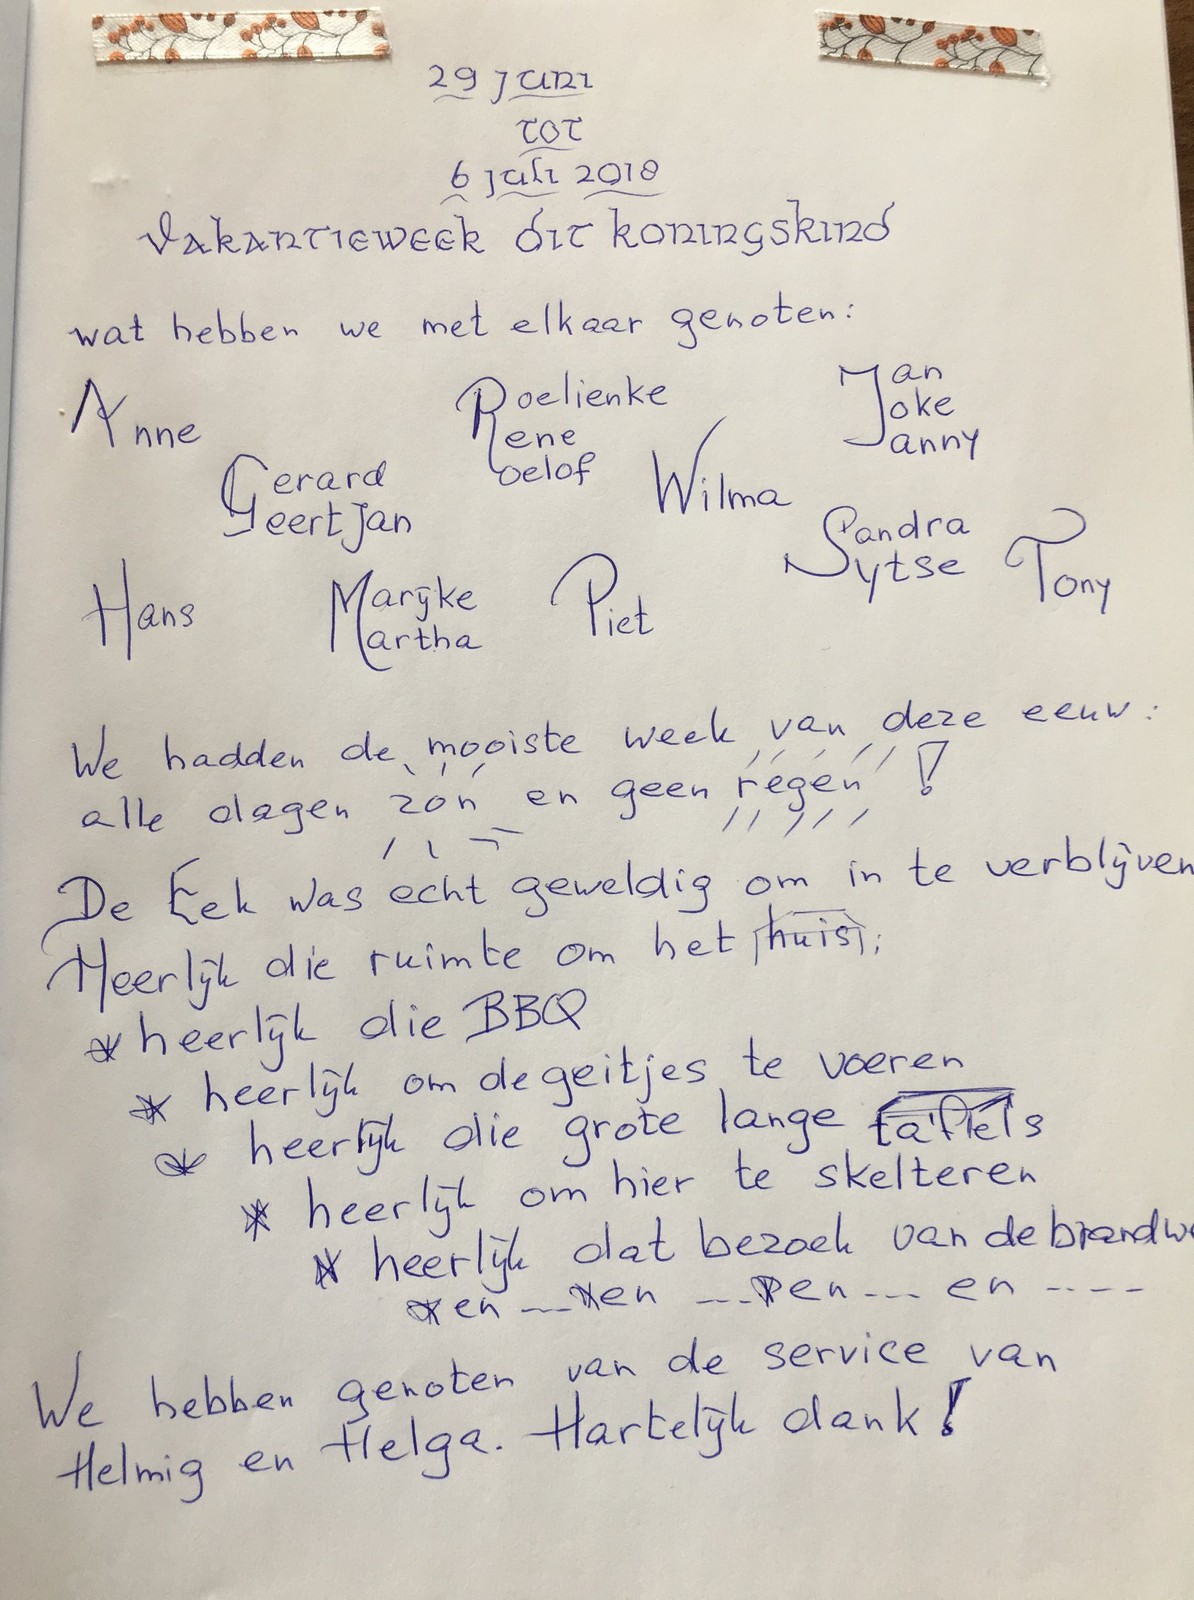 29 juni
tot
6 juli 2018
Vakantieweek dit koningskind
wat hebben we met elkaar genoten:
Anne
Roelienke
Rene
Roelof
Jan
Joke
Janny
Gerard
Geertjan
Wilma
Sandra
Sytse
Tony
Hans
Marijke
Martha
Piet
We hadden de mooiste week van deze eeuw:
alle dagen zon en geen regen!
De Eek was echt geweldig om in te verblijven
Heerlijk die ruimte om het huis;
* heerlijk die BBQ
* heerlijk om de geitjes te voeren
* heerlijk die grote lange tafels
* heerlijk om hier te skelteren
* heerlijk dat bezoek van de brandwe
* en ---* en ---* en --- en ----
We hebben genoten van de service van
Helmig en Helga. Hartelijk dank!